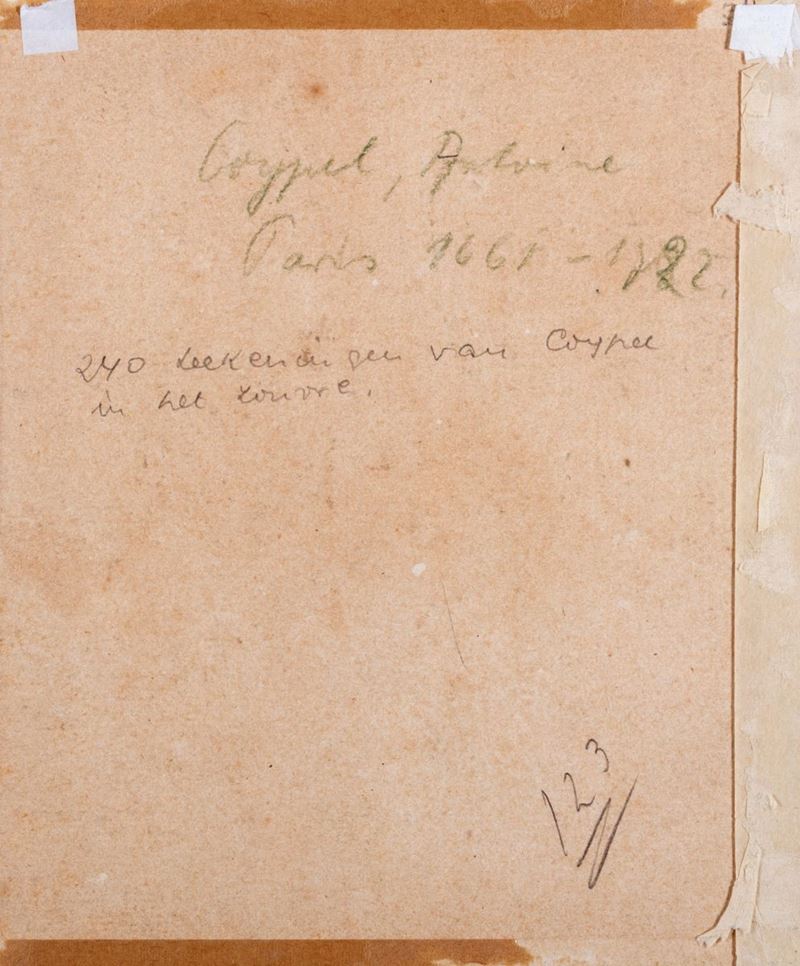 Coypel, Antoine
Paris 1661 - 1722.
240 teekeningen van Coypel
in het Louvre.
123